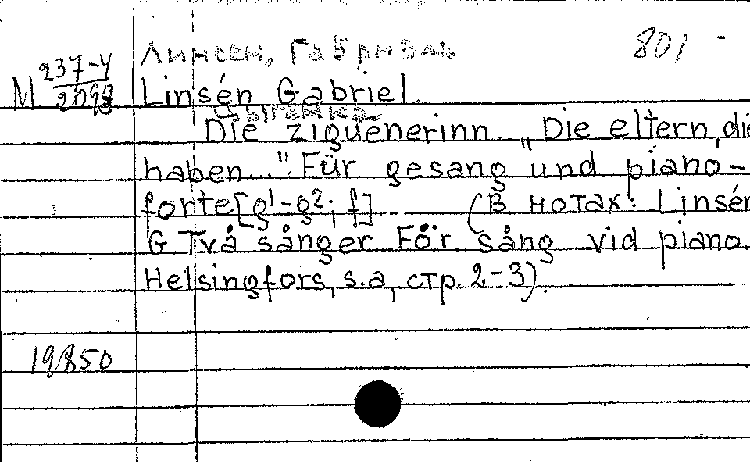 Линсен, Габриэль 801 -
M 237-4/2098 Linsén Gabriel.
Цыганка
Die ziguenerinn. „Die eltern, die
haben..." Für gesang und piano-
forte [g¹-g²; f] (В нотах: Linsén
G Två sånger För sång vid piano.
Helsingfors, s.a, стр. 2-3).
19850